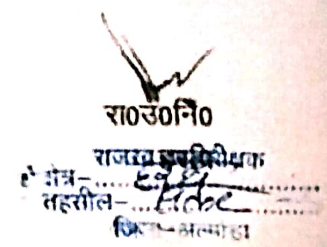 रा०उ०नि०
राजस्व उपनिरीक्षक
क्षेत्र-
तहसील-
जिला-अल्मोड़ा